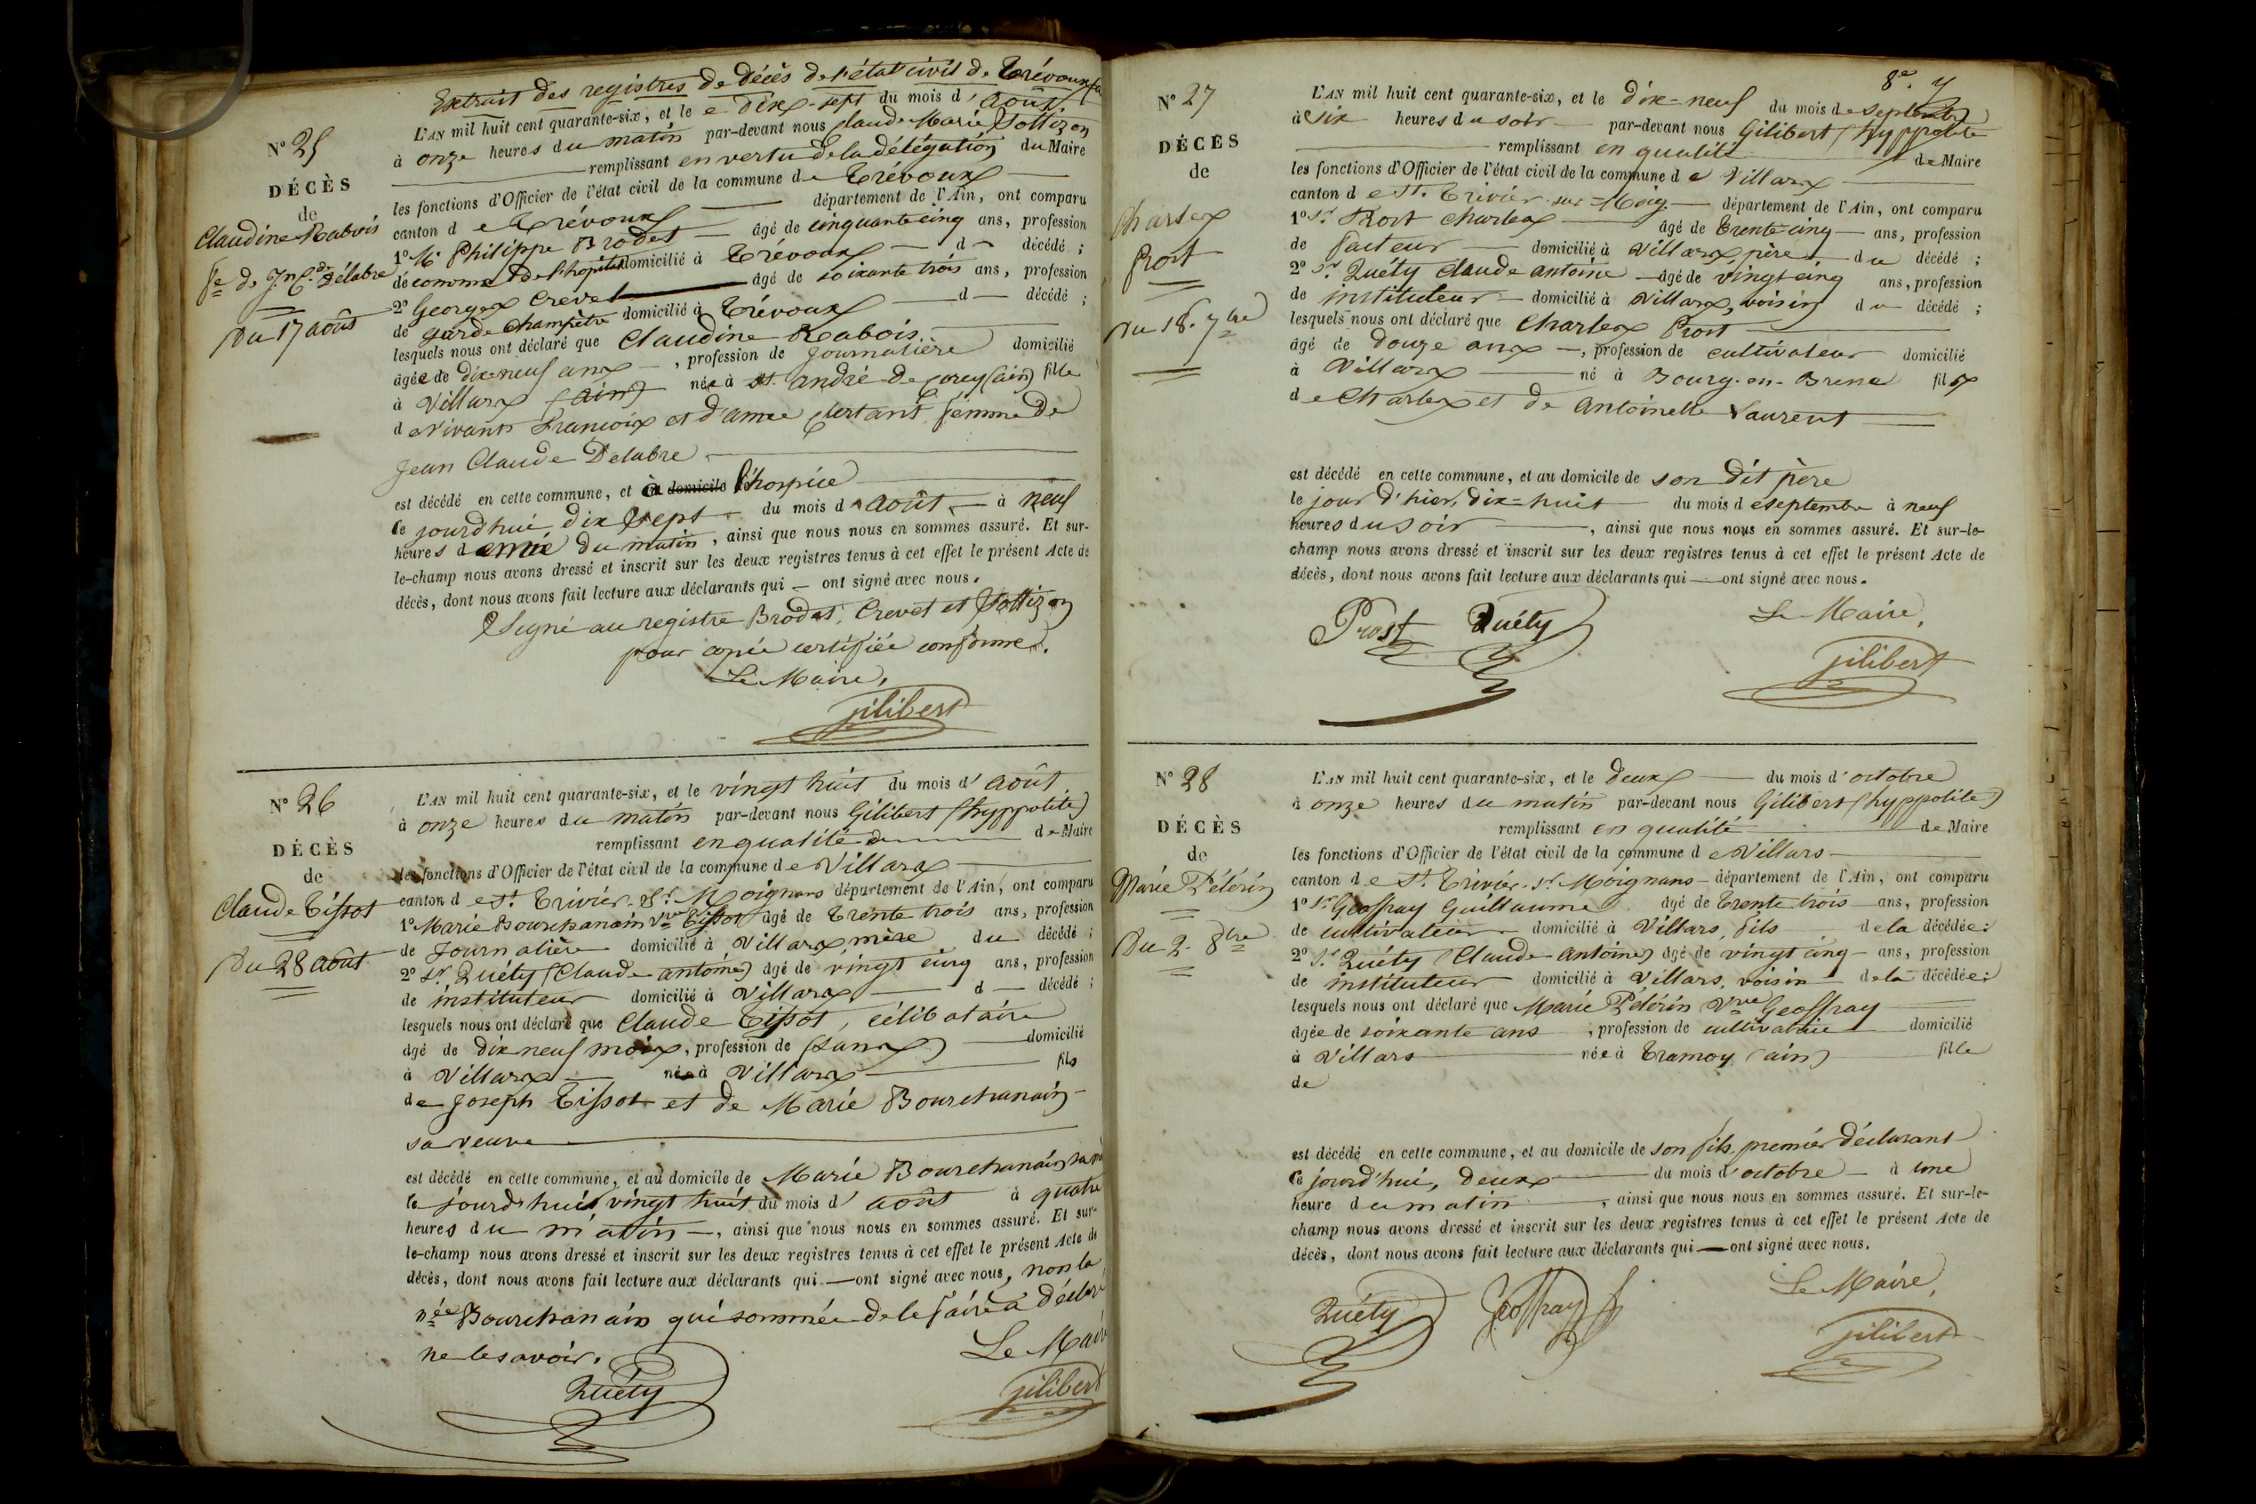 Extrait des registres de décès de l'état civil de Trévoux
N° 25
DÉCÈS
de
Claudine Rabois
fe de J.n C.de Délabre
Du 17 août
L'AN mil huit cent quarante-six, et le dix-sept du mois d'août
à onze heures du matin par-devant nous Claude Marie
remplissant en vertu de la délégation du Maire
les fonctions d'Officier de l'état civil de la commune de Trévoux
canton de Trévoux département de l'Ain, ont comparu
1° Mr Philippe Brodet âgé de cinquante cinq ans, profession
d'économe de l'hôpital domicilié à Trévoux d décédé ;
2° Georges Crevet âgé de soixante trois ans, profession
de garde champêtre domicilié à Trévoux d décédé ;
lesquels nous ont déclaré que Claudine Rabois
âgée de dix neuf ans, profession de Journalière domicilié
à Villars (ain) née à St. andré de Corcy (ain) fille
de vivants François et d'anne femme de
Jean Claude Delabre
est décédé en cette commune, et à domicile l'hospice
Ce jourd'hui dix sept du mois d'août à neuf
heures du matin, ainsi que nous nous en sommes assuré. Et sur-
le-champ nous avons dressé et inscrit sur les deux registres tenus à cet effet le présent Acte de
décès, dont nous avons fait lecture aux déclarants qui — ont signé avec nous.
Signé au registre Brodet, Crevet et
pour copie certifiée conforme.
Le Maire,
Gilibert
N° 26
DÉCÈS
de
Claude Tissot
Du 28 août
L'AN mil huit cent quarante-six, et le vingt huit du mois d'août
à onze heures du matin par-devant nous Gilibert (hyppolite)
remplissant en qualité de Maire
les fonctions d'Officier de l'état civil de la commune de Villars
canton de St. Trivier Sr. Moignans département de l'Ain, ont comparu
1° Marie Bourchanain Vve Tissot âgé de trente trois ans, profession
de Journalière domicilié à Villars, mère du décédé ;
2° Sr. Quéty (Claude antoine) âgé de vingt cinq ans, profession
de instituteur domicilié à Villars d décédé ;
lesquels nous ont déclaré que Claude Tissot, célibataire
âgé de dix neuf mois, profession de (sans) domicilié
à Villars né à Villars fils
de Joseph Tissot et de Marie Bourchanain
sa veuve
est décédé en cette commune, et au domicile de Marie Bourchanain
Ce jourd'hui vingt huit du mois d'août à quatre
heures du matin, ainsi que nous nous en sommes assuré. Et sur-
le-champ nous avons dressé et inscrit sur les deux registres tenus à cet effet le présent Acte de
décès, dont nous avons fait lecture aux déclarants qui — ont signé avec nous, non la
née Bourchanain qui sommée de le faire a déclaré
ne le savoir.
Le Maire
Quéty
Gilibert
8e.
N° 27
DÉCÈS
de
Charles
Prost
Du 18. 7bre
L'AN mil huit cent quarante-six, et le dix-neuf du mois de septembre
à six heures du soir par-devant nous Gilibert (hyppolite
remplissant en qualité de Maire
les fonctions d'Officier de l'état civil de la commune de Villars
canton de St. Trivier sur Moig. département de l'Ain, ont comparu
1° Sr. Prost Charles âgé de trente cinq ans, profession
de facteur domicilié à Villars, père du décédé ;
2° Sr. Quéty Claude antoine âgé de vingt cinq ans, profession
de instituteur domicilié à Villars, voisin du décédé ;
lesquels nous ont déclaré que Charles Prost
âgé de douze ans, profession de cultivateur domicilié
à Villars né à Bourg-en-Bresse fils
de Charles et de Antoinette Laurent
est décédé en cette commune, et au domicile de son dit père
le jour d'hier, dix-huit du mois de septembre à neuf
heures du soir, ainsi que nous nous en sommes assuré. Et sur-le-
champ nous avons dressé et inscrit sur les deux registres tenus à cet effet le présent Acte de
décès, dont nous avons fait lecture aux déclarants qui — ont signé avec nous.
Prost Quéty Le Maire,
Gilibert
N° 28
DÉCÈS
de
Marie Pélérin
Du 2. 8bre
L'AN mil huit cent quarante-six, et le deux du mois d'octobre
à onze heures du matin par-devant nous Gilibert (hyppolite)
remplissant en qualité de Maire
les fonctions d'Officier de l'état civil de la commune de Villars
canton de St. Trivier Sr. Moignans département de l'Ain, ont comparu
1° Sr Geoffray Guillaume âgé de trente trois ans, profession
de cultivateur domicilié à Villars, fils de la décédée ;
2° Sr. Quéty (Claude Antoine) âgé de vingt cinq ans, profession
de instituteur domicilié à Villars, voisin de la décédée ;
lesquels nous ont déclaré que Marie Pélérin Vve Geoffray
âgée de soixante ans, profession de cultivatrice domicilié
à Villars née à Tramoy (ain) fille
de
est décédé en cette commune, et au domicile de son fils premier déclarant
Ce jourd'hui, deux du mois d'octobre à une
heure du matin, ainsi que nous nous en sommes assuré. Et sur-le-
champ nous avons dressé et inscrit sur les deux registres tenus à cet effet le présent Acte de
décès, dont nous avons fait lecture aux déclarants qui — ont signé avec nous.
Le Maire,
Quéty Geoffray
Gilibert